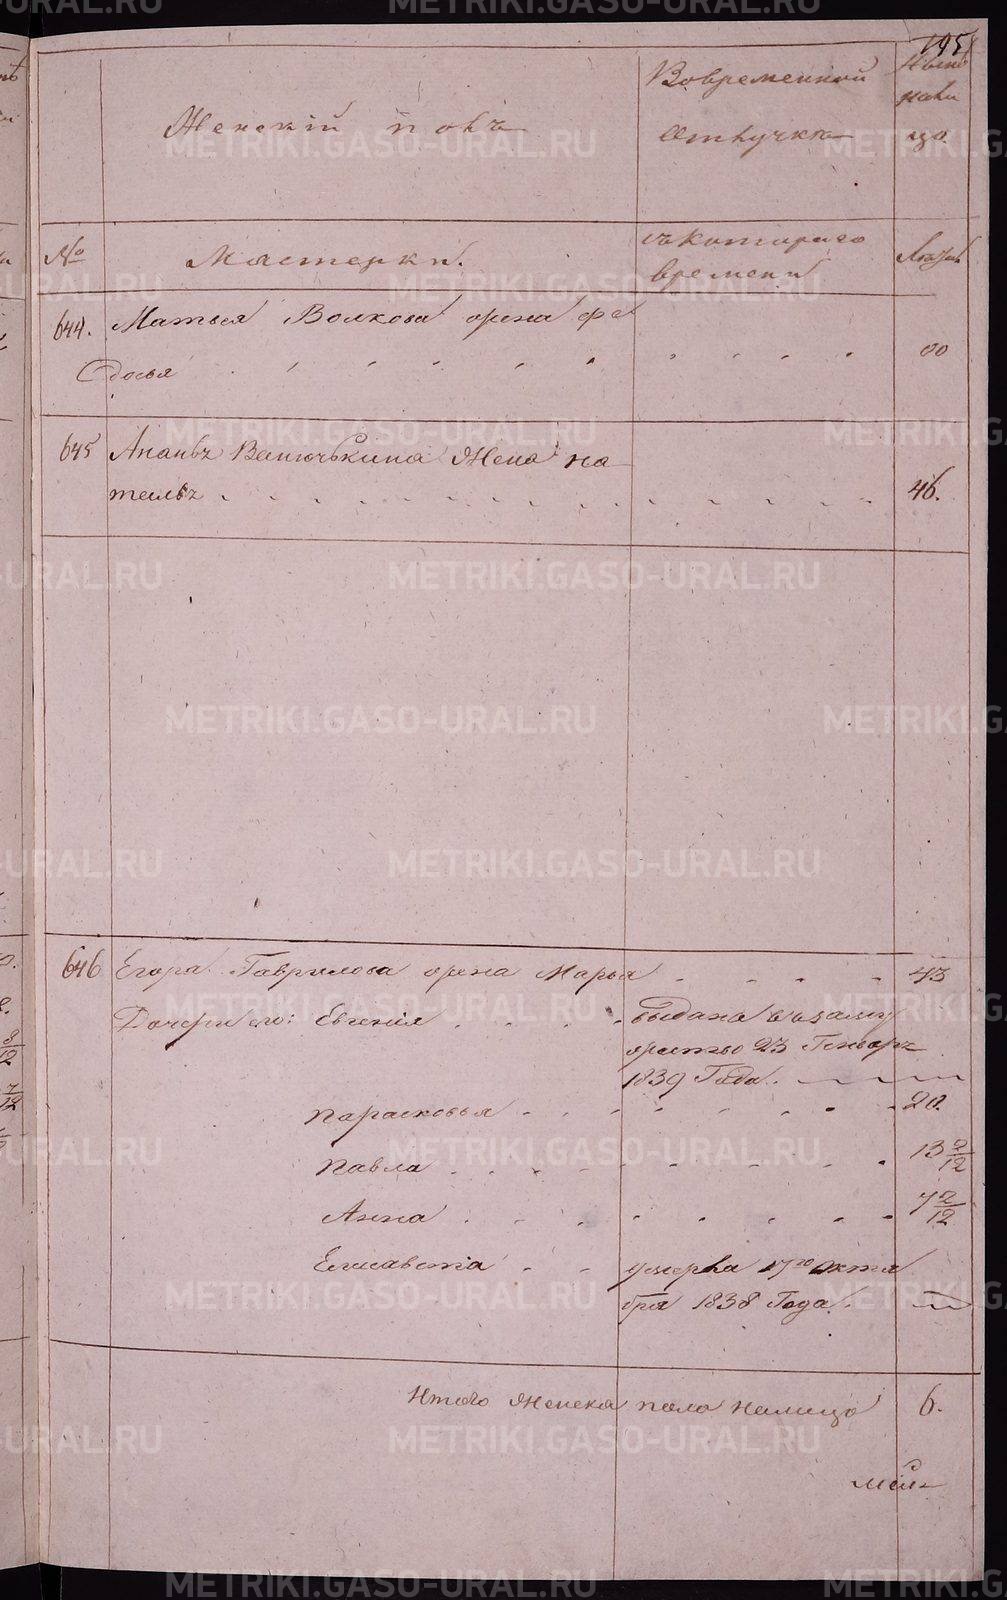 195
Женскій полъ
Вовременной
Отлучке
Ныне
нали
цо.
№
Мастерки.
съ Котораго
времени
Лета
644. Матвея Волкова жена Фе
досья 60
645 Ананья Ванючькина Жена На
талья 46.
646 Егора Гаврилова жена Марья 43
Дочери его: Евгенія выдана в Заму
жество 23 Генваря
1839 Года.
Парасковья 20.
Павла 13 2/12
Анна 7 2/12
Елисавета умерла 17го октя
бря 1838 Года.
Итого Женска пола налицо 6.
METRIKI.GASO-URAL.RU